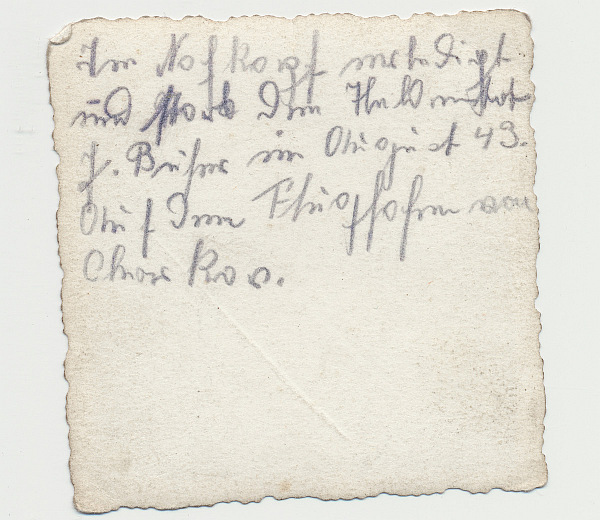 Im Nahkampf verteidigt
und starb den Heldentot
J. Bühr im August 43.
Auf dem Flughafen von
Charkow.